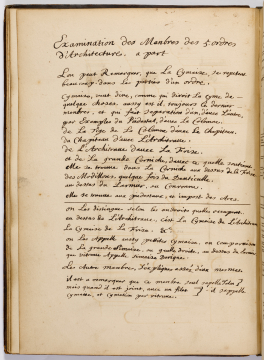 Examination des Membres des 5 ordres
d'Architecture. a part
L'on peut Remarquer, que La Cymaise, se repetent
beaucoup dans les parties d'un ordre.
Cymaise, veut dire, comme qui diroit La Cyme de
quelque choses, aussy est il toujours le dernier
membres, et qui fait Separation d'un, d'avec L'autre,
par Exemples du Piédestat, d'avec La Colonne,
de La Tige de La Colonne d'avec le Chapiteau,
du Chapiteau d'avec L'Architrave.
de L'Architrave d'avec La Frize.
et de La grande Corniche, d'avec ce quelle soutient
elle se trouve dans La Corniche au dessus de la Frize
des Modillons, quelque fois du Denticulle,
au dessus du Larmier, ou Couronne.
elle se trouve aux piédestaux, et impost des Arcs
on Les distingue selon les endroits quelles occupent.
au dessus de L'Architrave, c'est La Cymaise de L'Architrave
La Cymaise de La Frize. &c
on Les Appelle aussy petites Cymaises, en comparaison
de La grande, ou quelle droite, au dessus du Larmier
que Vitruve Appelle Simaise Dorique.
Les Autre membres, s'expliquent assés d'eux mesmes.
il est a remarquer que ce membre seul s'appelle Talon
mais quand il est joint, avec un filet, il s'appelle
cymaise, et cymatium par vitruve.